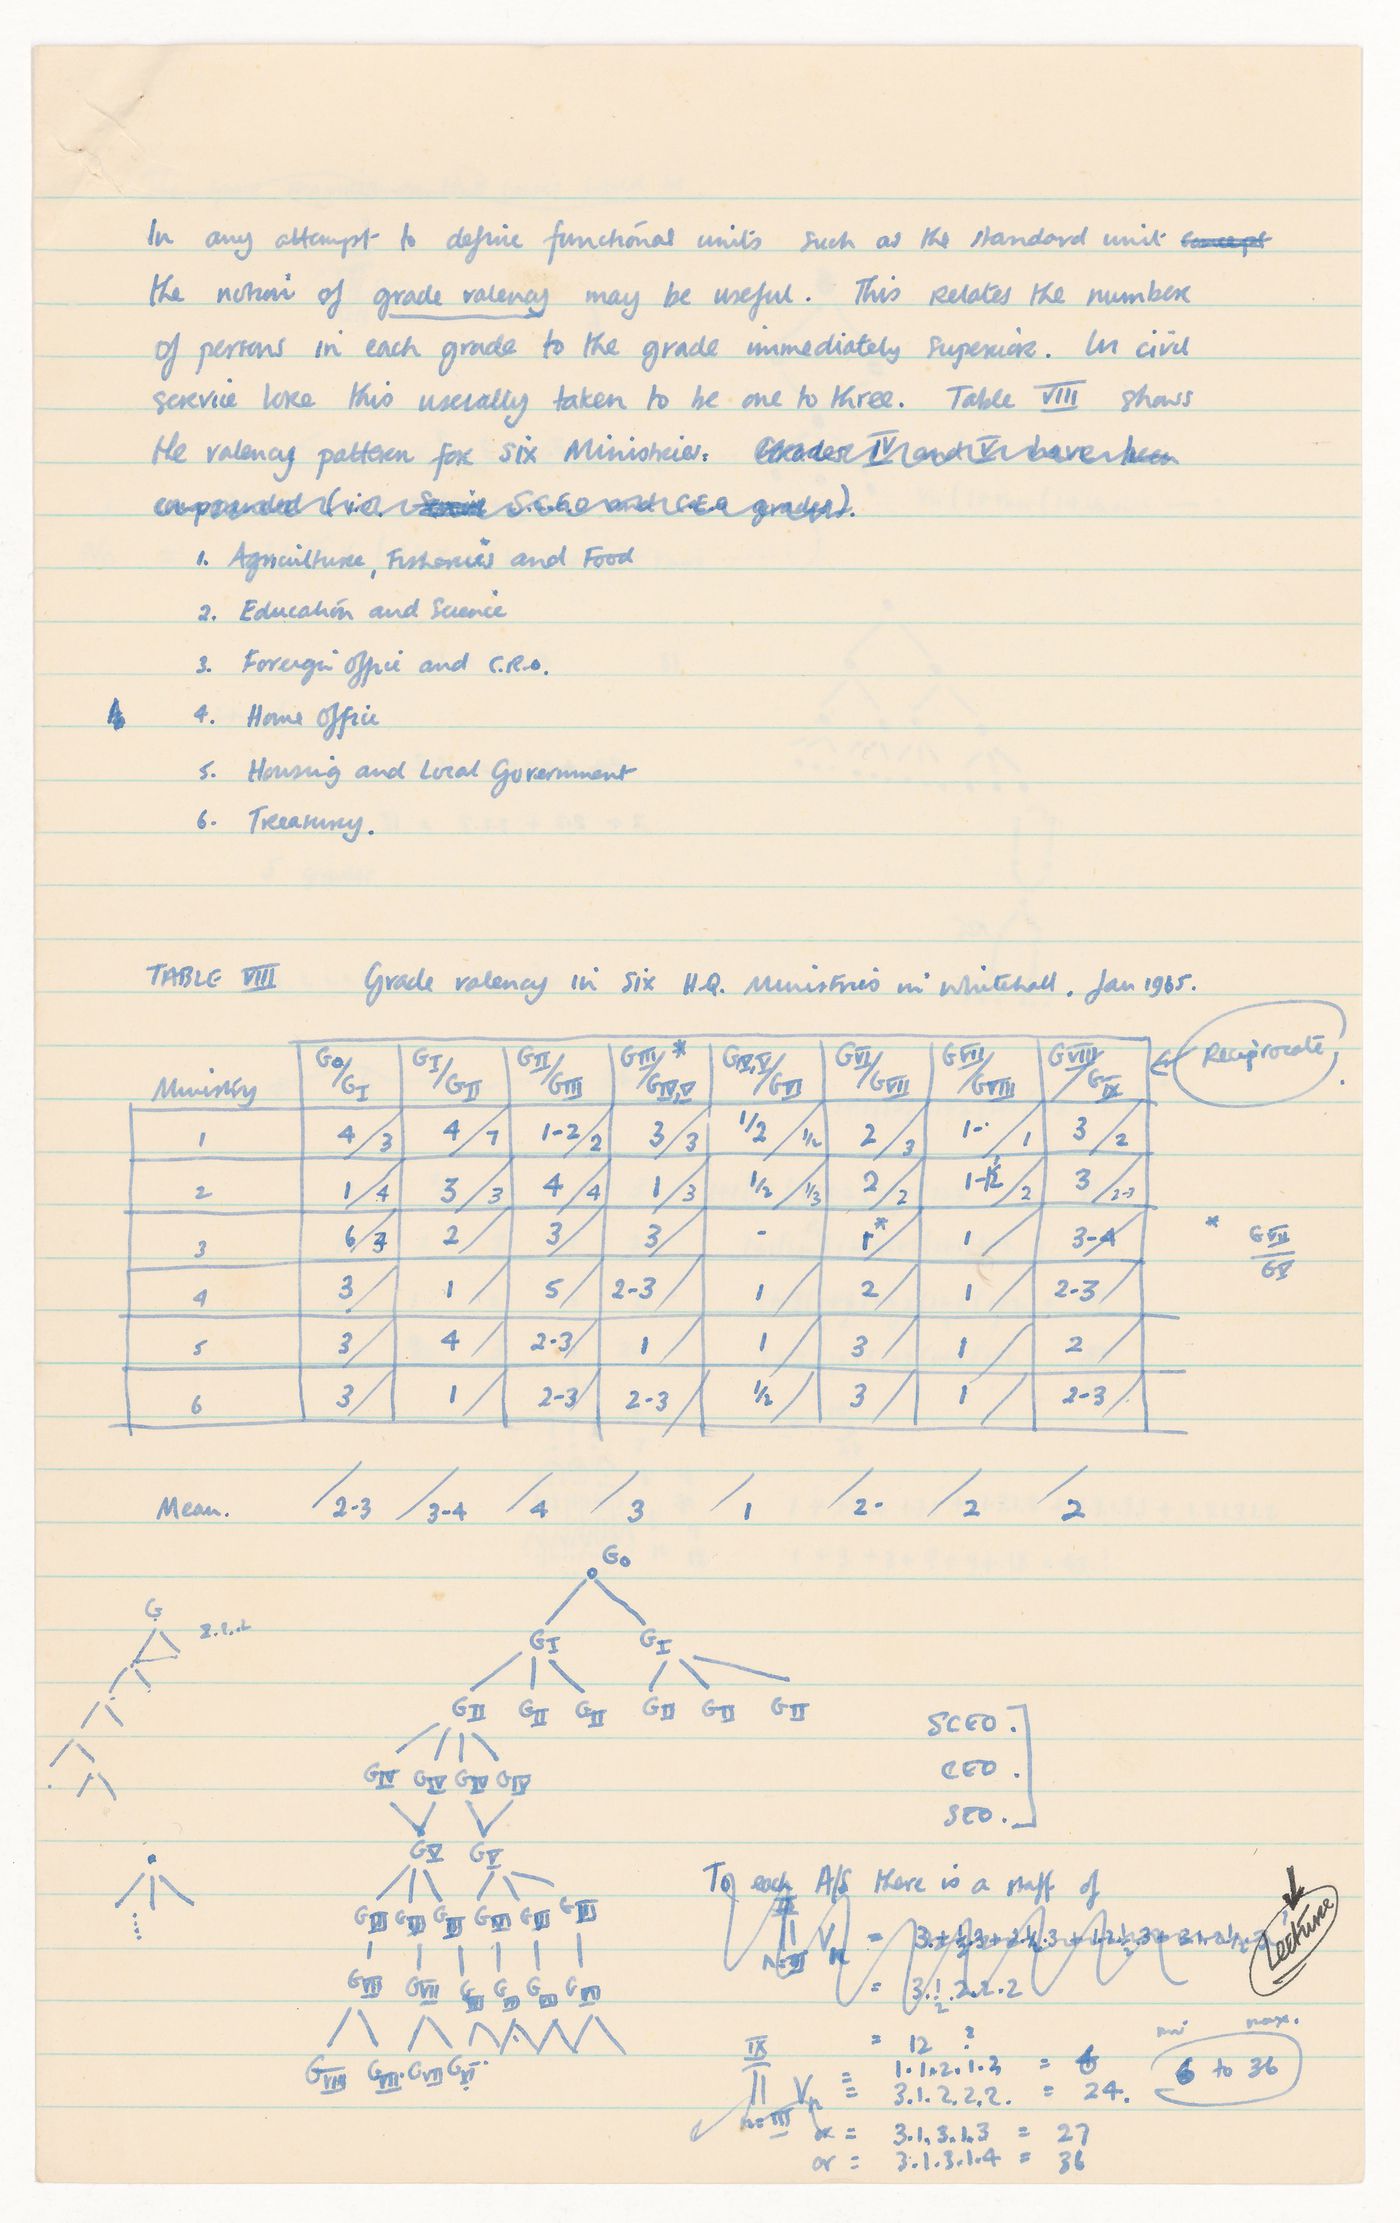 In any attempt to define functional units such as the standard unit concept
the notion of grade valency may be useful. This relates the number
of persons in each grade to the grade immediately superior. In civil
service lore this usually taken to be one to three. Table VIII shows
the valency pattern for six Ministries. Grades IV and V have been
compounded (i.e. S.C.E.O and C.E.O grades).
1. Agriculture, Fisheries and Food
2. Education and Science
3. Foreign Office and C.R.O.
4. Home Office
5. Housing and Local Government
6. Treasury.
TABLE VIII Grade valency in six H.Q. Ministries in Whitehall. Jan 1965.
Ministry G0/GI GI/GII GII/GIII GIII/GIV,V * GIV,V/GVI GVI/GVII GVII/GVIII GVIII/GIX Reciprocate
1 4/3 4/7 1-2/2 3/3 1/2 / 1/2 2/3 1-/1 3/2
2 1/4 3/3 4/4 1/3 1/2 / 1/3 2/2 1-2/2 3/2-3
3 6/3 2/ 3/ 3/ - 1*/ 1/ 3-4/
* GVII/GV
4 3/ 1/ 5/ 2-3/ 1/ 2/ 1/ 2-3/
5 3/ 4/ 2-3/ 1/ 1/ 3/ 1/ 2/
6 3/ 1/ 2-3/ 2-3/ 1/2 / 3/ 1/ 2-3/
Mean. /2-3 /3-4 /4 /3 /1 /2- /2 /2
G0
G
GI GI
GII GII GII GII GII GII
SCEO.
GIV GIV GIV GIV
CEO.
SEO.
GV GV
To each A/S there is a staff of
Lecture
= 3.1/2.2.2.2
= 12 ?
min max.
6 to 36
IX
Π Vn
n=III
= 1.1.2.1.3 = 6
= 3.1.2.2.2. = 24.
or = 3.1.3.1.3 = 27
or = 3.1.3.1.4 = 36